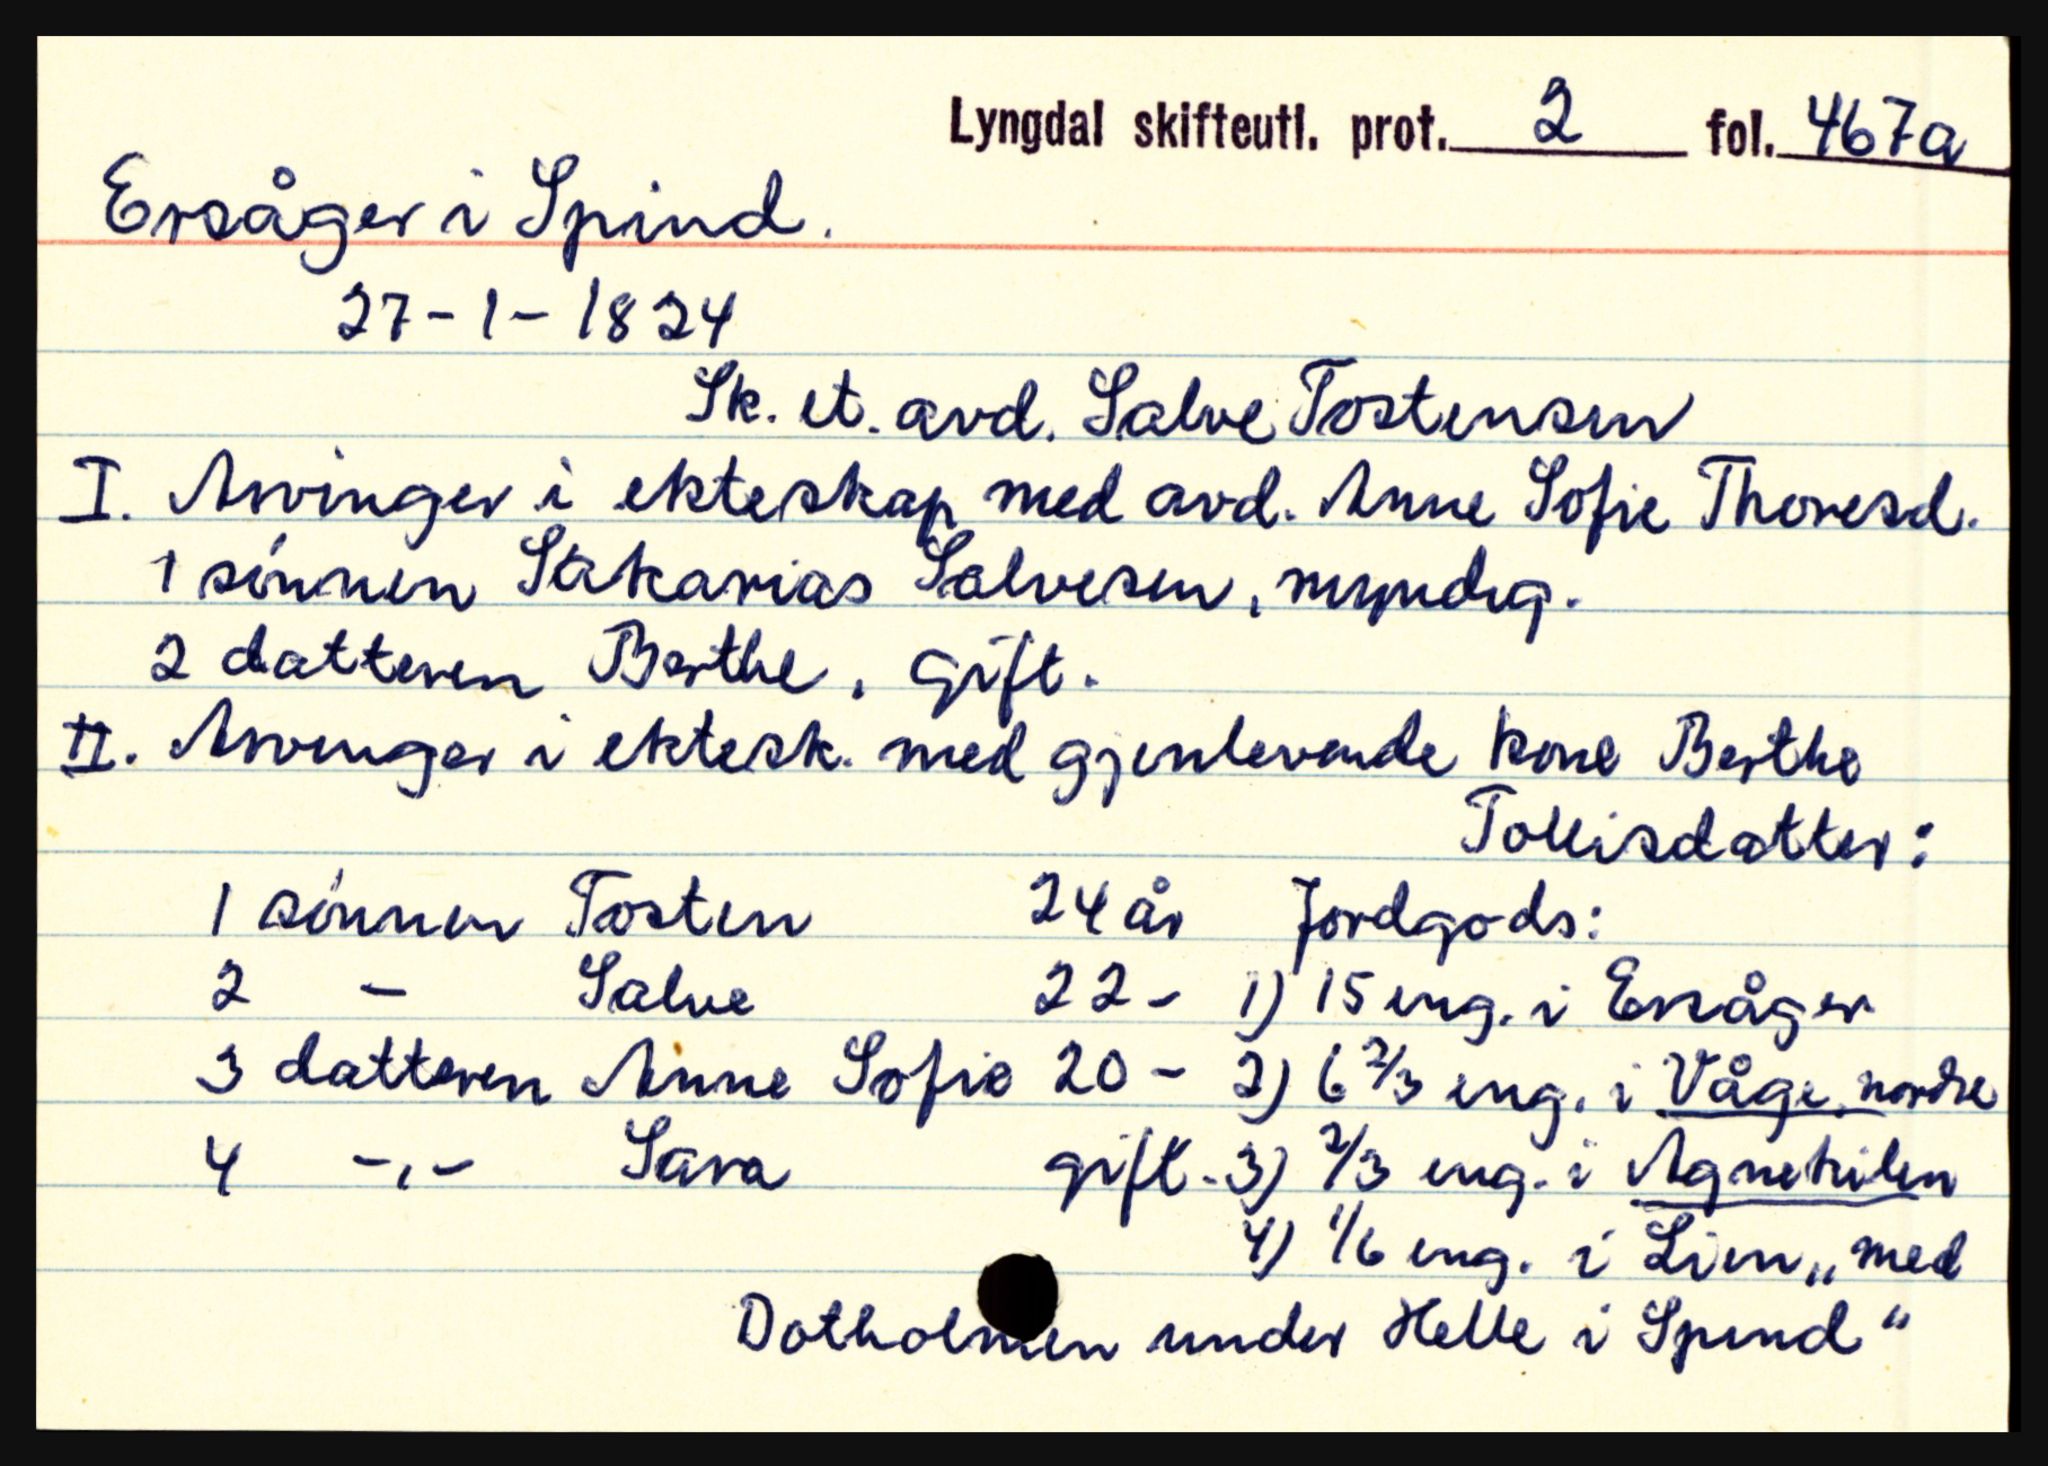 Lyngdal skifteutl. prot. 2 fol. 467a
Ersåger i Spind.
27-1-1824
Sk. et. avd. Salve Tostensen
I. Arvinger i ekteskap med avd. Anne Sofie Thoresd.
1 sønnen Sakarias Salvesen, myndig.
2 datteren Berthe, gift.
II. Arvinger i ektesk. med gjenlevende kone Berthe
Tollisdatter:
1 sønnen Tosten 24 år Jordgods:
2 - Salve 22 - 1) 15 eng. i Ersåger
3 datteren Anne Sofie 20 - 2) 6 2/3 eng. i Våge nordre
4 -,- Sara gift. 3) 2/3 eng. i Agnekilen
4) 1/6 eng. i Lien „med
Dotholmen under Helle i Spind“